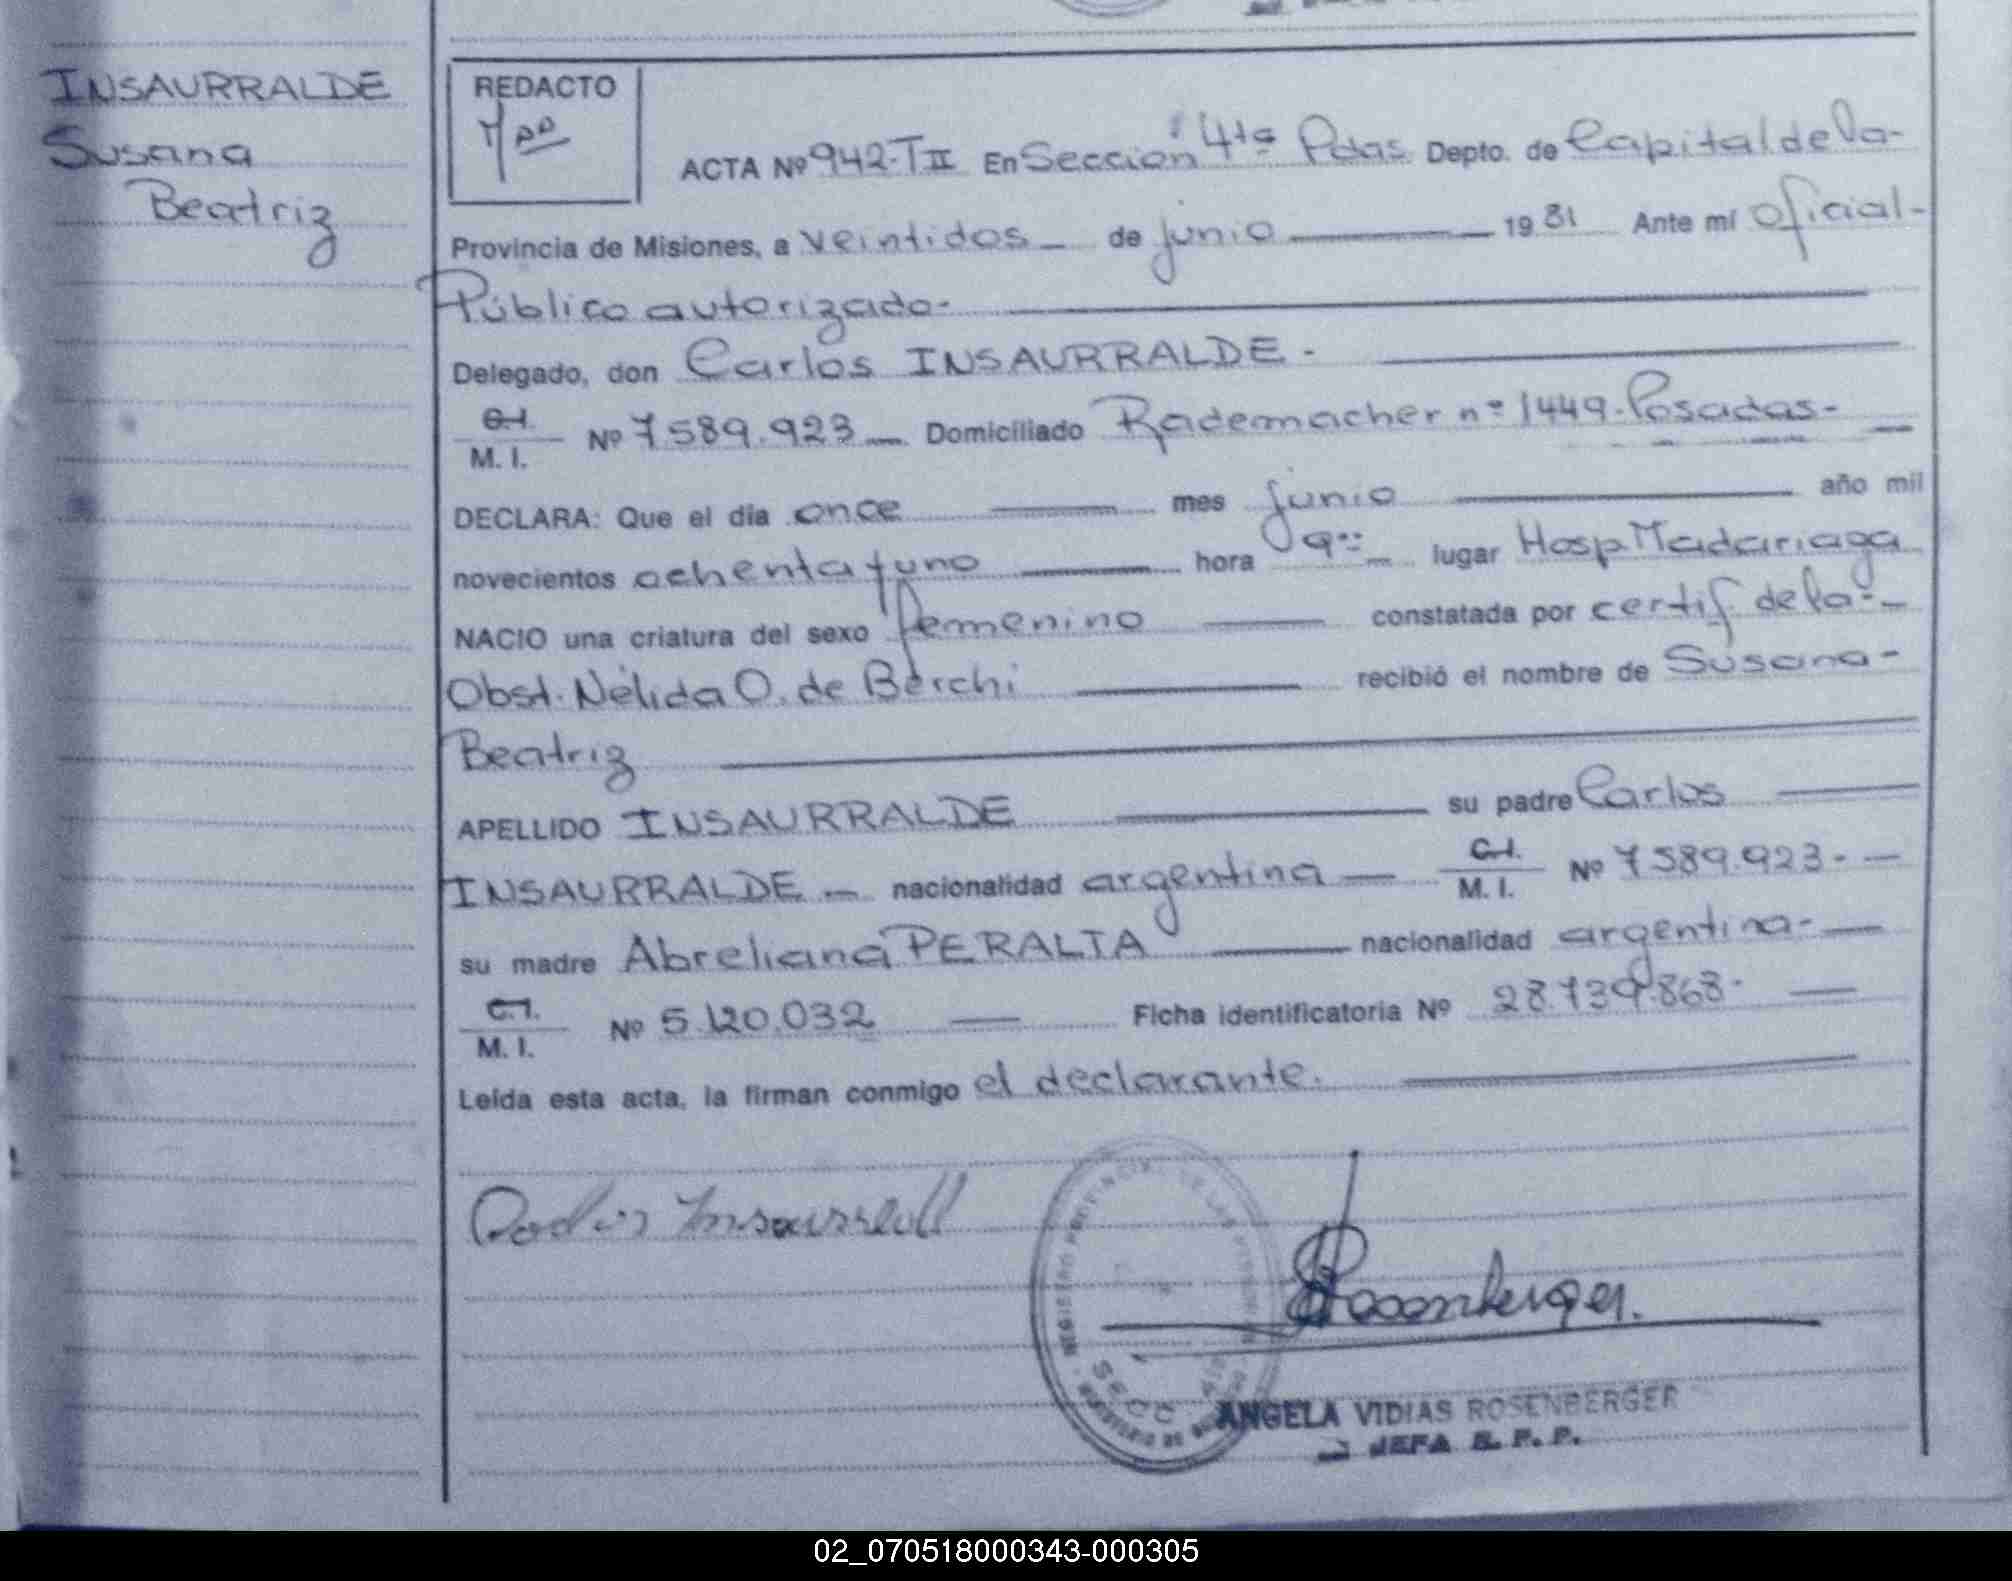 INSAURRALDE
Susana
Beatriz
REDACTO
ACTA Nº 942-TII En Sección 4ta Pdas. Depto. de Capital de la-
Provincia de Misiones, a veintidos de junio 1981 Ante mí Oficial-
Público autorizado-
Delegado, don Carlos INSAURRALDE-
C.I.
M. I. Nº 7589.923 Domiciliado Rademacher nº 1449-Posadas-
DECLARA: Que el día once mes junio año mil
novecientos ochenta y uno hora 9 lugar Hosp Madariaga
NACIO una criatura del sexo femenino constatada por certif. de la-
Obst. Nélida O. de Berchi recibió el nombre de Susana-
Beatriz
APELLIDO INSAURRALDE su padre Carlos
INSAURRALDE nacionalidad argentina C.I. M. I. Nº 7589.923-
su madre Abreliana PERALTA nacionalidad argentina-
C.I.
M. I. Nº 5.120.032 Ficha identificatoria Nº 28.739.868-
Leída esta acta, la firman conmigo el declarante.
Rosenberger.
REGISTRO PROVINCIAL DE LAS PERSONAS
SECC 4ta
MINISTERIO DE GOBIERNO
ANGELA VIDIAS ROSENBERGER
JEFA R. P. P.
02_070518000343-000305